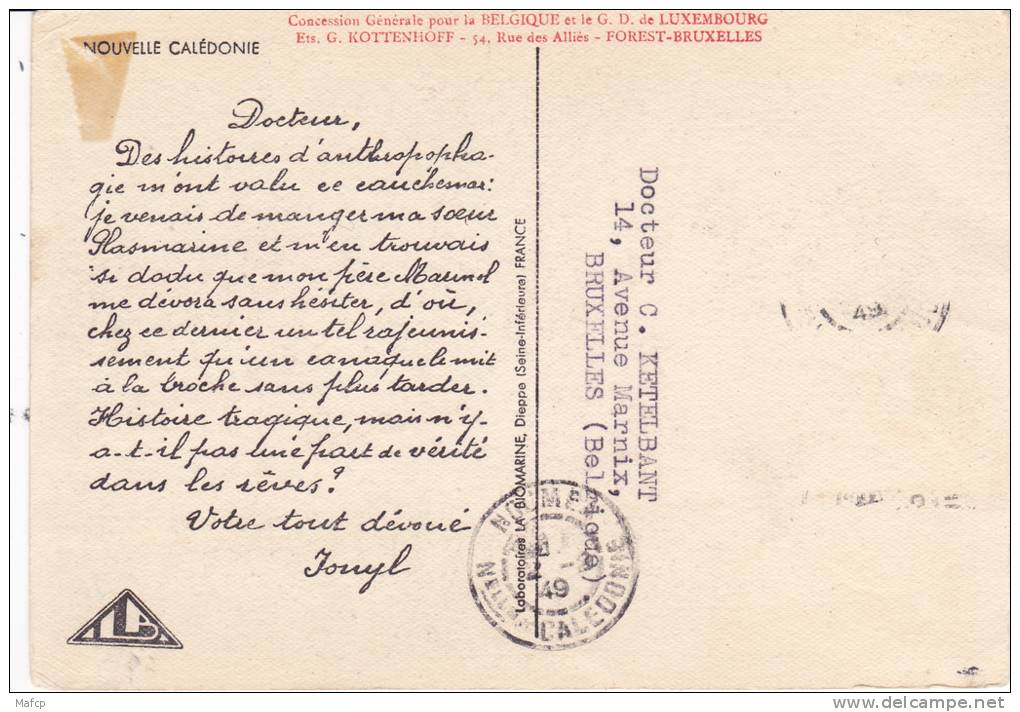 Concession Générale pour la BELGIQUE et le G. D. de LUXEMBOURG
Ets. G. KOTTENHOFF - 54, Rue des Alliés - FOREST-BRUXELLES
NOUVELLE CALÉDONIE
Docteur,
Des histoires d'anthropopha-
gie m'ont valu ce cauchemar:
je venais de manger ma sœur
Plasmarine et m'en trouvais
si dodu que mon frère Marinol
me dévora sans hésiter, d'où,
chez ce dernier un tel rajeunis-
sement qu'un canaque le mit
à la broche sans plus tarder.
Histoire tragique, mais n'y-
a-t-il pas une part de vérité
dans les rêves?
Votre tout dévoué
Ionyl
LAB
Laboratoires LA BIOMARINE, Dieppe (Seine-Inférieure) FRANCE
Docteur C. KETELBANT
14, Avenue Marnix,
BRUXELLES (Belgique)
NOUMEA
49
NELLE CALEDONIE
49
Mafcp
delcampe.net